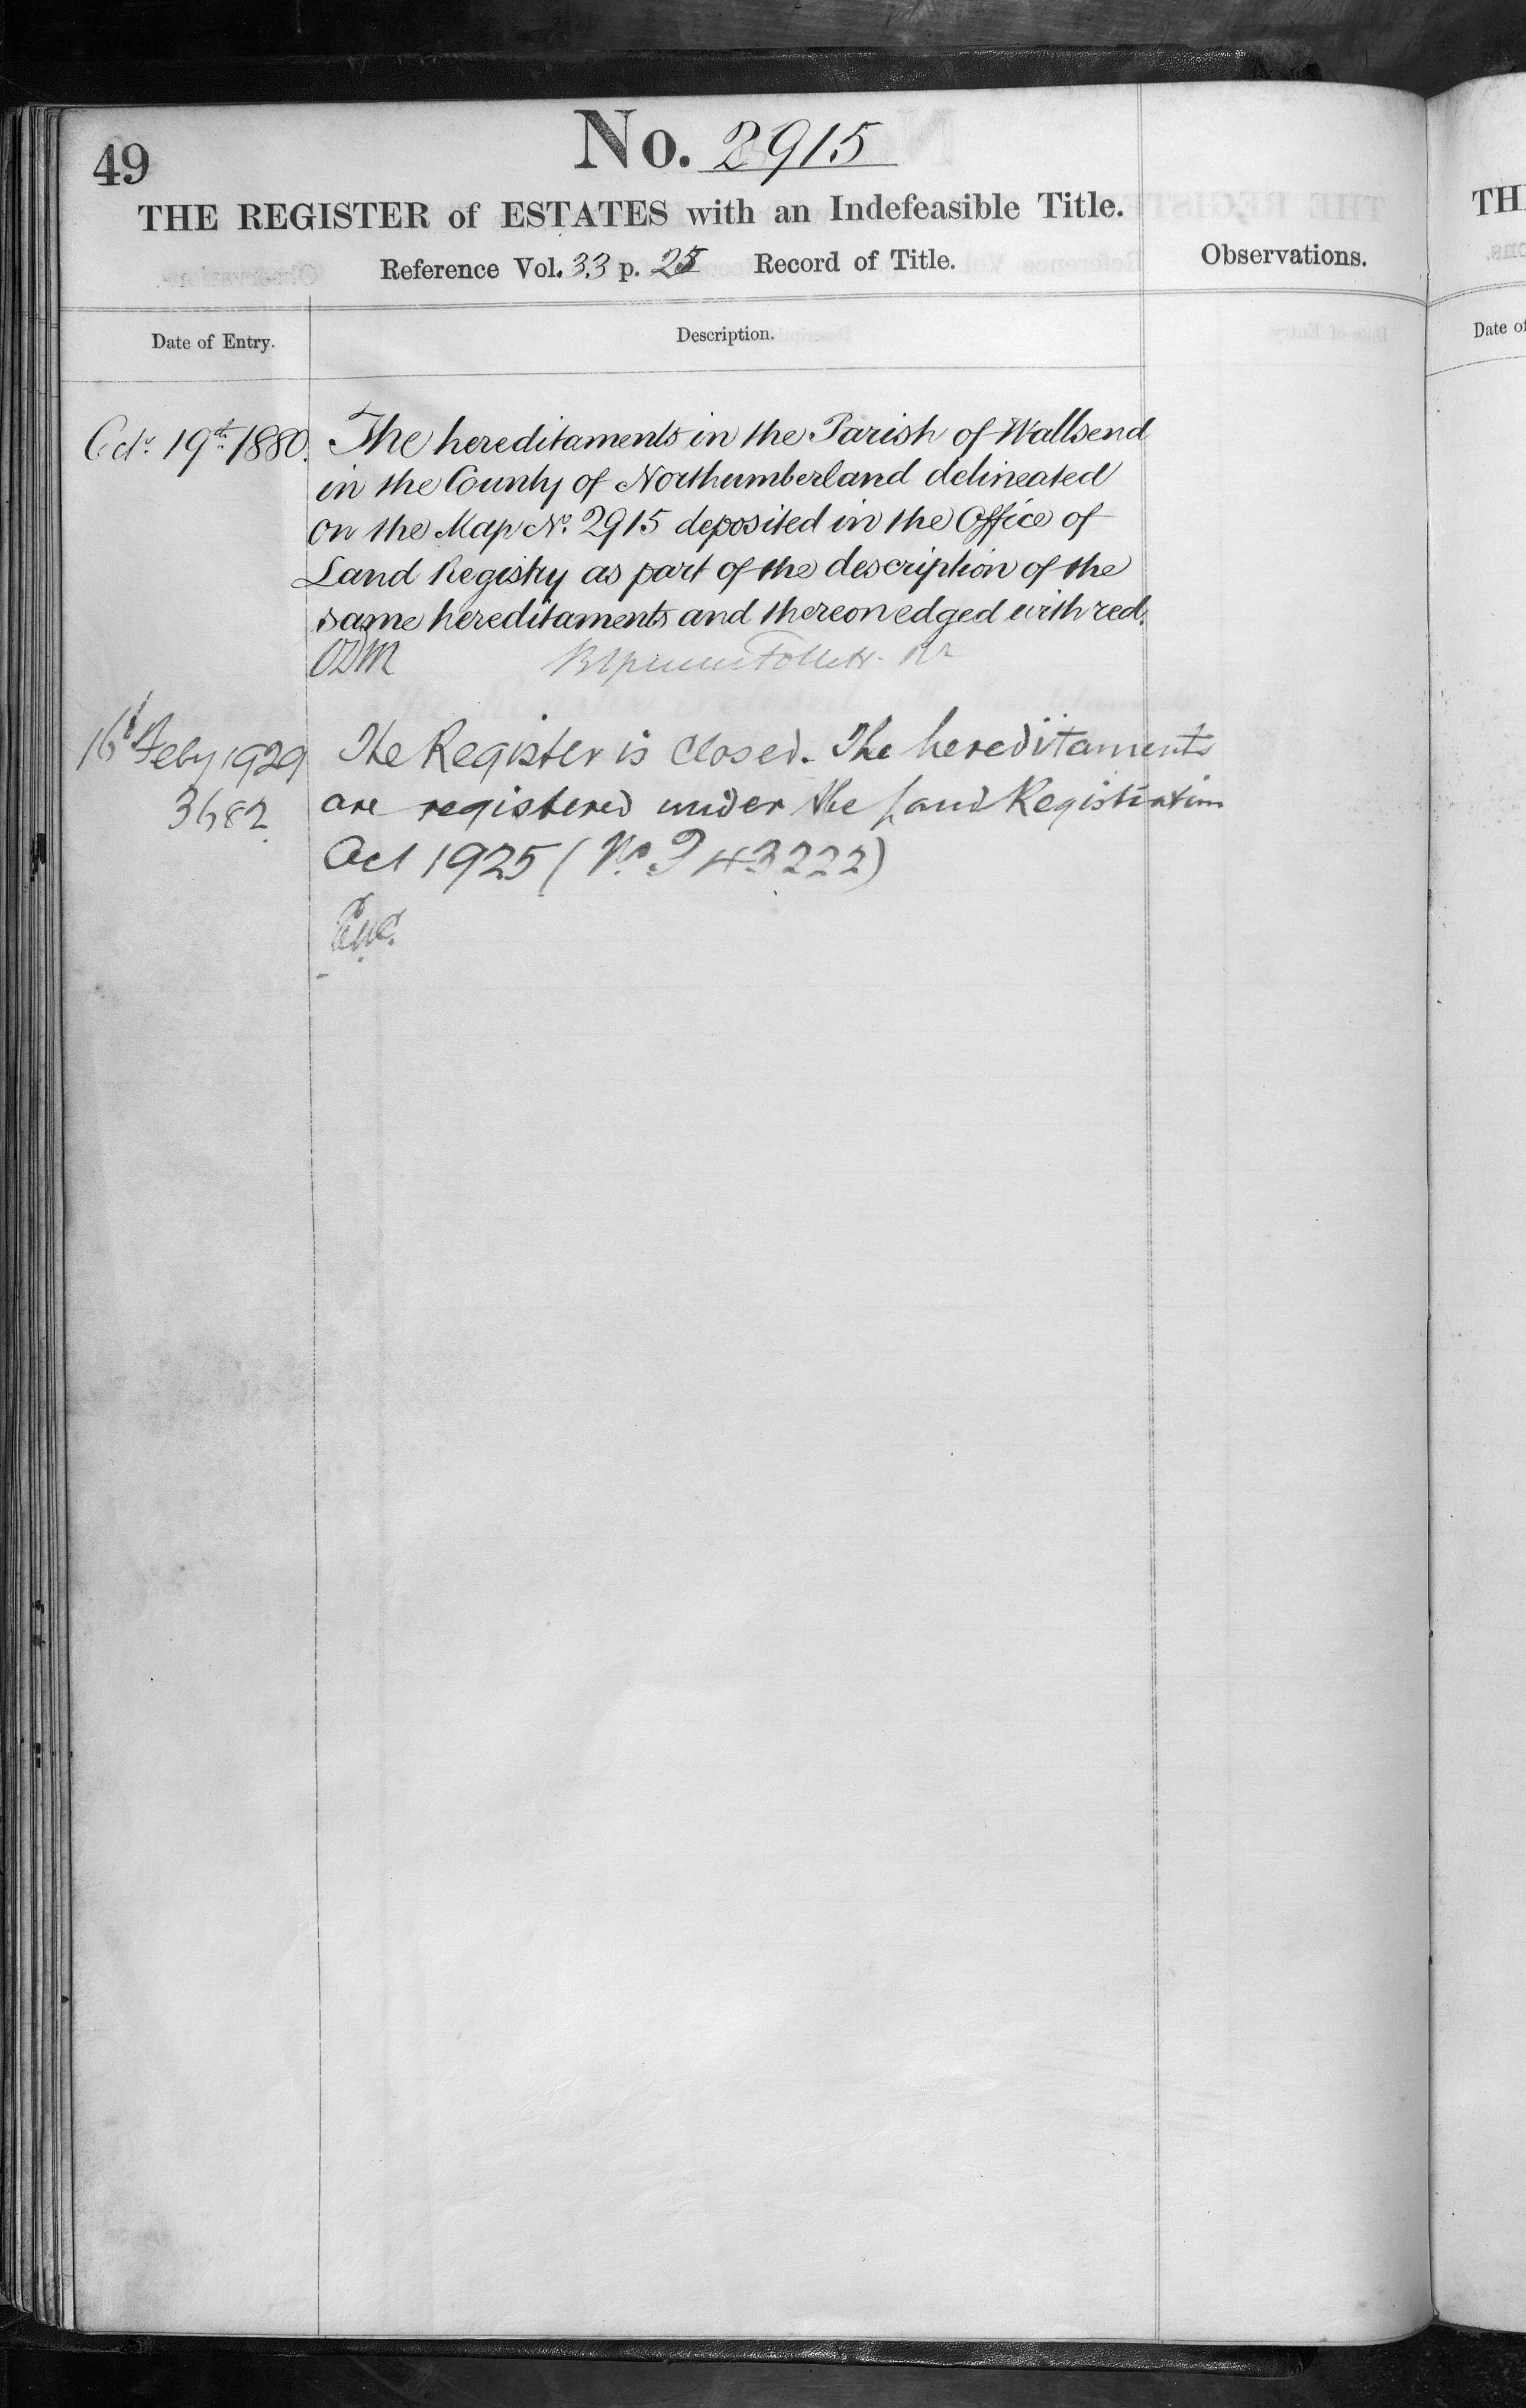 49
No. 2915
THE REGISTER of ESTATES with an Indefeasible Title.
Reference Vol. 33 p. 25 Record of Title.
Observations.
Date of Entry.
Description.
Octr. 19th 1880. The hereditaments in the Parish of Wallsend
in the County of Northumberland delineated
on the Map No. 2915 deposited in the Office of
Land Registry as part of the description of the
same hereditaments and thereon edged with red.
Follett
16th Feby 1929 The Register is closed. The hereditaments
3682 are registered under the Land Registration
Act 1925 (No. 43222)
TH
Date of